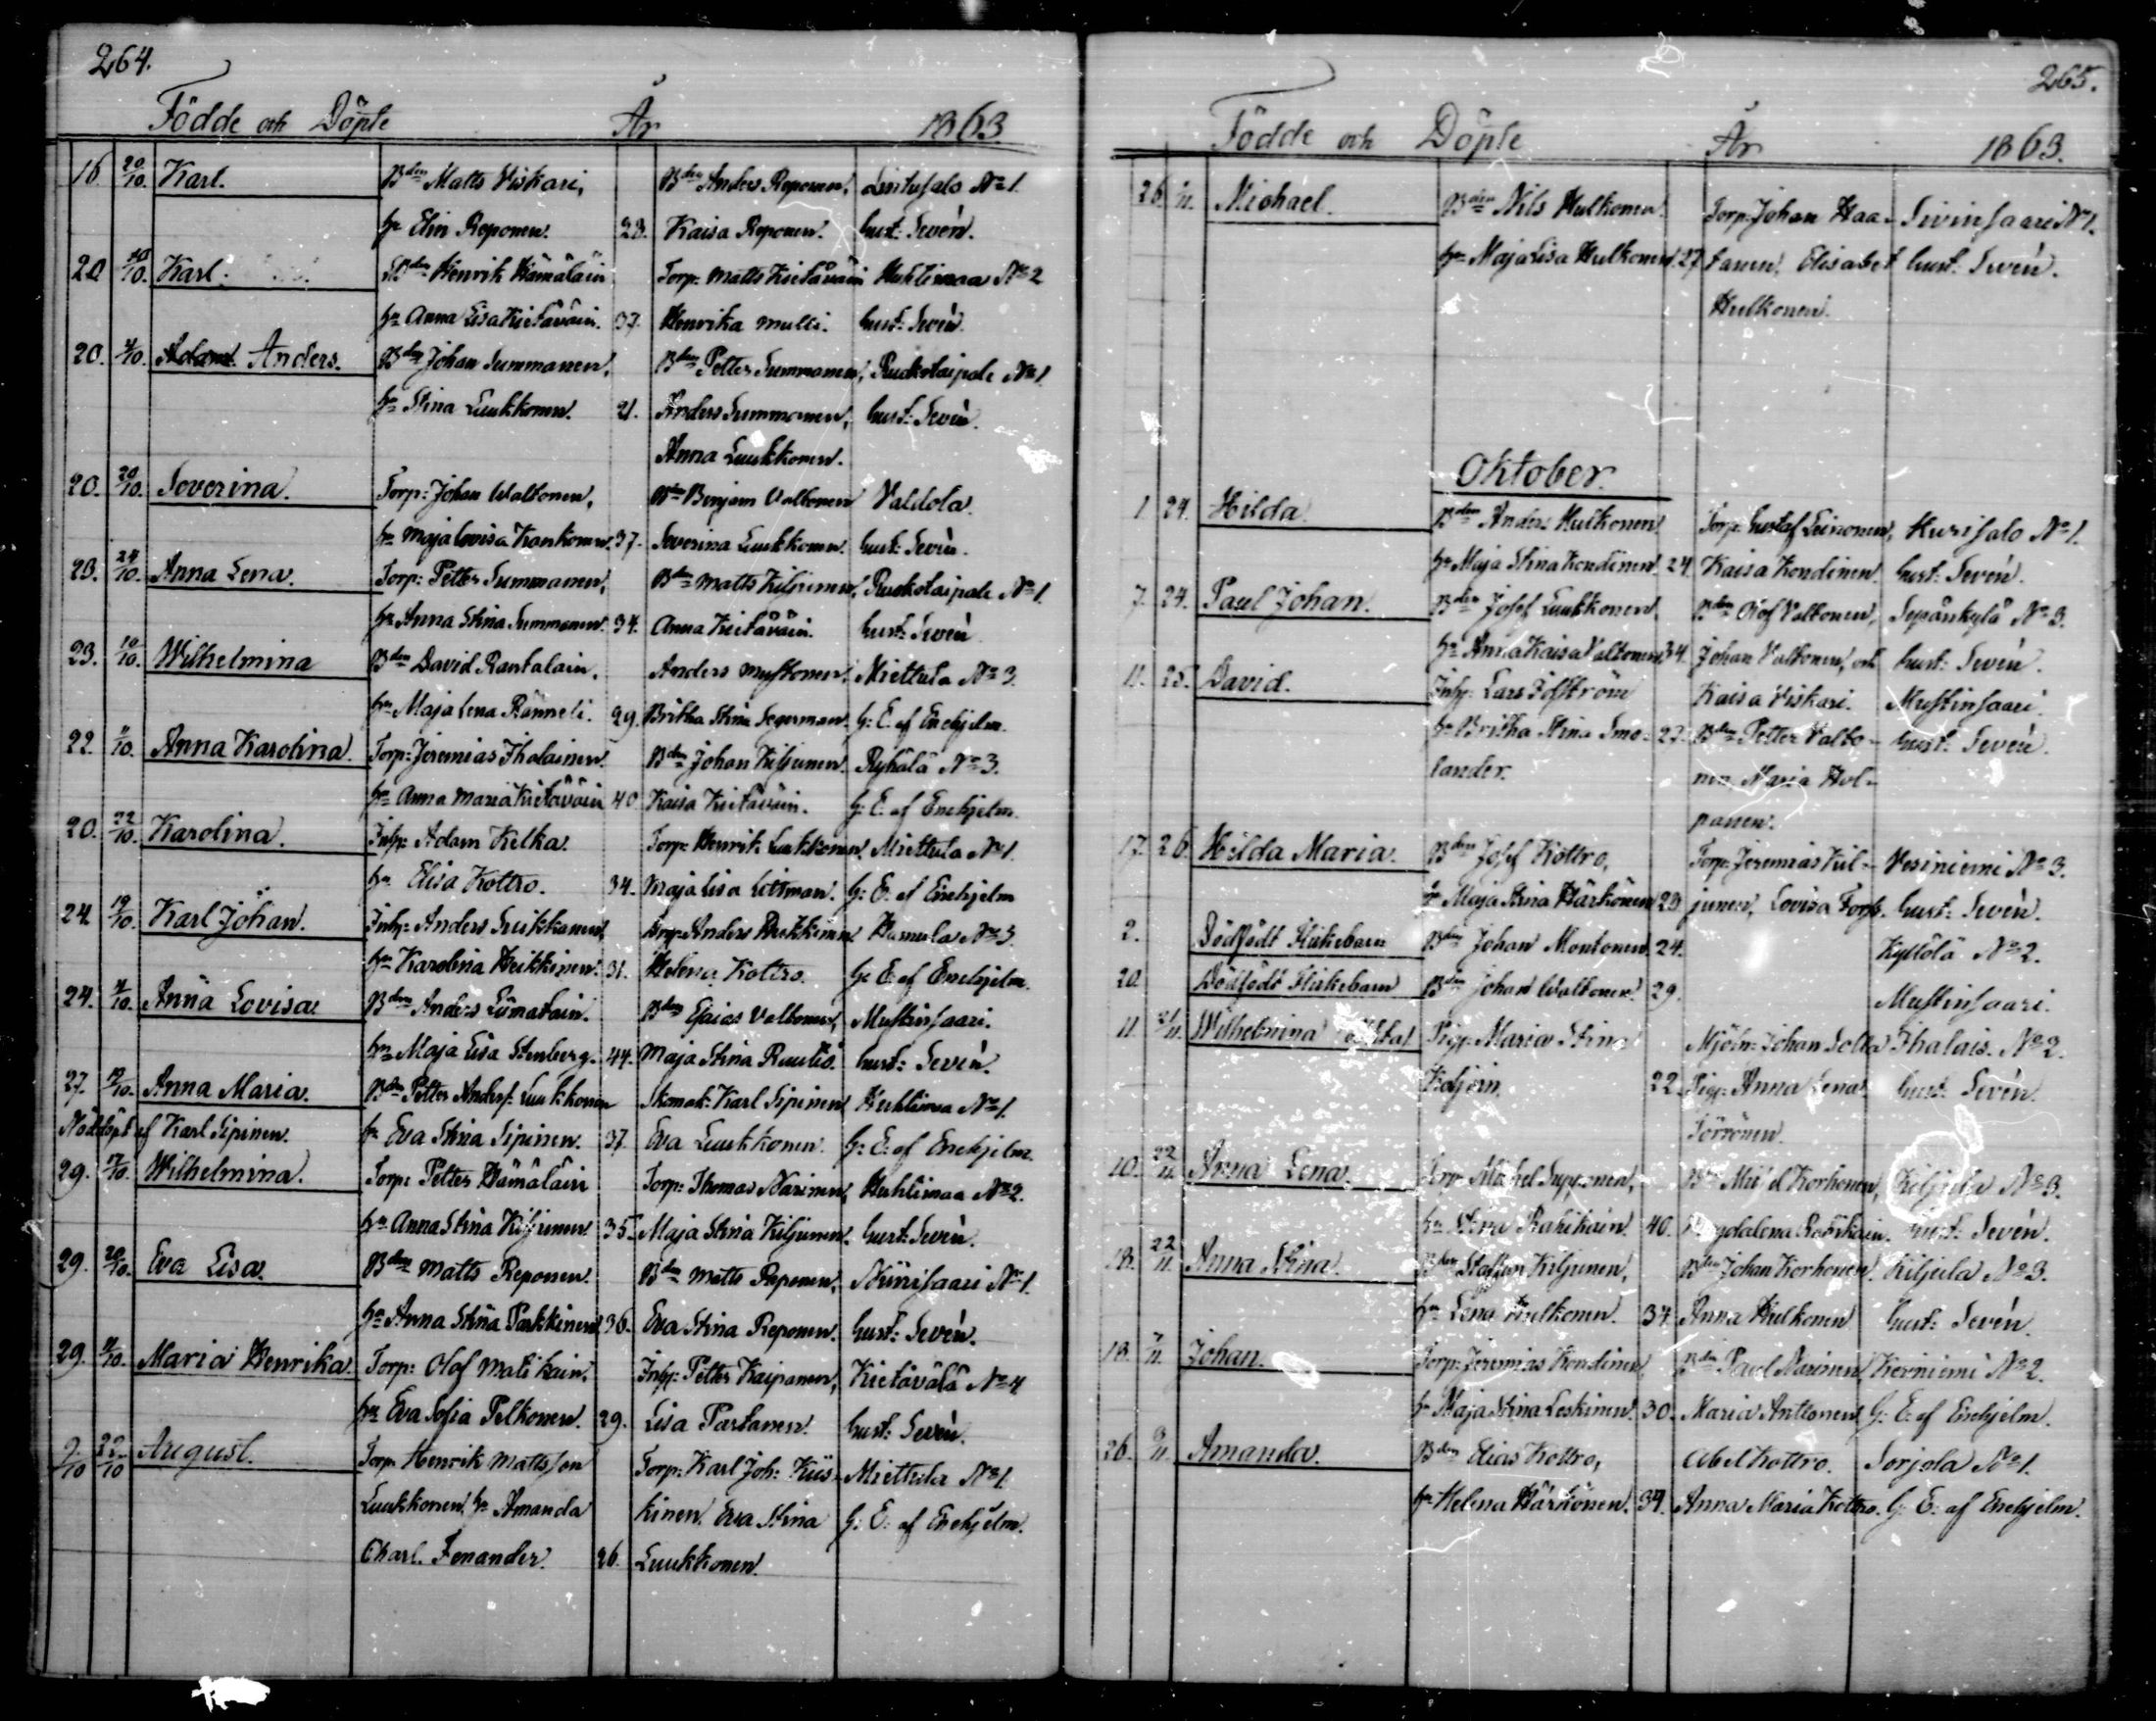 264.
Födde och Döpte År 1863
16. 20/10. Karl. Bden Matts Viskari, Bden Anders Reponen, No 1.
hu Elin Reponen. 23. Kaisa Reponen. Gust: Sevén.
20 Karl. Bden Henrik Hämäläin Torp: Matts Kietäväin Huhtimaa No 2
hu Anna Lisa Kietäväin. 37. Henrika Multi. Gust: Sevén.
20. Adam. Anders. Bden Johan Summanen, Bden Petter Summanen, Ruokotaipale No 1.
hu Stina Luukkonen. 21. Anders Summanen, Gust: Sevén.
Anna Luukkonen.
20. 20/10. Severina. Torp: Johan Waltonen, Bden Benjam Valtonen Valdola.
hu Maja Lovisa Kankonen. 37. Severina Luukkonen. Gust: Sevén.
23. 24/10. Anna Lena. Torp: Petter Summanen, Bden Matts Kiljunen, Ruokotaipale No 1.
hu Anna Stina Summanen. 34. Anna Kietäväin. Gust: Sevén
23. 10/10. Wilhelmina Bden David Rantalain, Anders Mustonen, Miettula No 3.
hu Maja Lena Ränneli. 29. Britha Stina Segerman. G: E. af Enehjelm.
22. 11/10. Anna Karolina. Torp: Jeremias Ihalainen. Bden Johan Kiljunen. Ryhälä No 3.
hu Anna Maria Kietäväin 40. Kaisa Kietäväin. G: E. af Enehjelm.
20. 22/10. Karolina. Inh: Adam Kelka. Torp: Henrik Luukkonen. Miettula No 1.
hu Elisa Kottro. 34. Maja Lisa Littman. G: E. af Enehjelm
24. 19/10. Karl Johan. Inh: Anders Suikkanen, Anders Heikkinen Hamula No 3.
hu Karolina Heikkinen. 31. Helena Kottro. G: E. af Enehjelm.
24. 4/10. Anna Lovisa. Bden Anders Liimatain. Bden Esaias Valtonen, Mustinsaari.
hu Maja Lisa Stenberg. 44. Maja Stina Ruutiö. Gust: Sevén.
27. Anna Maria. Bden Petter Andersf. Luukkonen Skomak: Karl Sipinen Huhtimaa No 1.
Nöddöpt af Karl Sipinen. hu Eva Stina Sipinen. 37. Eva Luukkonen. G: E: af Enehjelm.
29. Wilhelmina. Torp: Petter Hämäläin Torp: Thomas Narinen, Huhtimaa No 2.
hu Anna Stina Kiljunen. 35. Maja Stina Kiljunen. Gust: Sevén.
29. 20/10. Eva Lisa. Bden Matts Reponen. Bden Matts Reponen, Niinisaari No 1.
hu Anna Stina Parkkinen 36. Eva Stina Reponen. Gust: Sevén.
29. 11/10. Maria Henrika. Torp: Olof Matikain. Inh: Petter Kaipanen, Kietävälä No 4
hu Eva Sofia Pelkonen. 29. Lisa Partanen. Gust: Sevén.
9/10 22/10 August. Torp: Henrik Mattsson Torp: Karl Joh: Kiis- Miettula No 1.
Luukkonen, hu Amanda kinen. Eva Stina G: E: af Enehjelm.
Charl. Fenander. 26. Luukkonen.
265.
Födde och Döpte År 1863.
26. Michael. Bden Nils Hulkonen. Torp: Johan Haa- Sivinsaari No 1.
hu Maja Lisa Hulkonen. 27. tanen. Elisabet Gust: Sevén.
Hulkonen.
Oktober.
1. 24. Hilda. Bden Anders Hulkonen. Torp: Gustaf Leinonen, Hurisalo No 1.
hu Maja Stina Kondinen. 24. Kaisa Kondinen. Gust: Sevén.
7. 24. Paul Johan. Bden Josef Luukkonen, Bden Olof Valtonen, Sepänkylä No 3.
hu Anna Kaisa Valtonen 34. Johan Valtonen, och Gust: Sevén.
11. 25. David. Inh: Lars Idström Kaisa Viskari. Mustinsaari.
hu Britha Stina Smo- 27. Bden Petter Valto- Gust: Sevén.
lander. nen, Maria Hol-
panen.
17. 26. Hilda Maria. Bden Josef Kottro, Torp: Jeremias Kil- Vesiniemi No 3.
hu Maja Stina Härkönen 29 junen, Lovisa Gust: Sevén.
2. Dödfödt flickebarn Bden Johan Montonen 24. Kyllölä No 2.
20 Dödfödt flickebarn Bden Johan Waltonen. 29. Mustinsaari.
11. 21/11. Wilhelmina oäkta! Pig: Maria Stina Mjöln: Johan Ihalais. No 2.
22. Pig: Anna Lena Gust: Sevén.
Törrönen.
10. 22/11. Anna Lena. Torp: Michel Supponen, Bden Michel Korhonen, Kiljula No 3.
hu Stina Rahikain. 40. Magdalena Gust: Sevén.
18. 22/11. Anna Stina. Bden Staffan Kiljunen, Bden Johan Korhonen. Kiljula No 3.
hu Lena Hulkonen. 34. Anna Hulkonen Gust: Sevén.
18. Johan. Torp: Jeremias Kondinen, Bden Paul Narinen, Kerniemi No 2.
hu Maja Stina Leskinen. 30. Maria Anttonen. G: E: af Enehjelm.
26. Amanda. Bden Elias Kottro, Abel Kottro. Sorjola No 1.
hu Helena Härkönen. 34. Anna Maria Kottro. G: E: af Enehjelm.